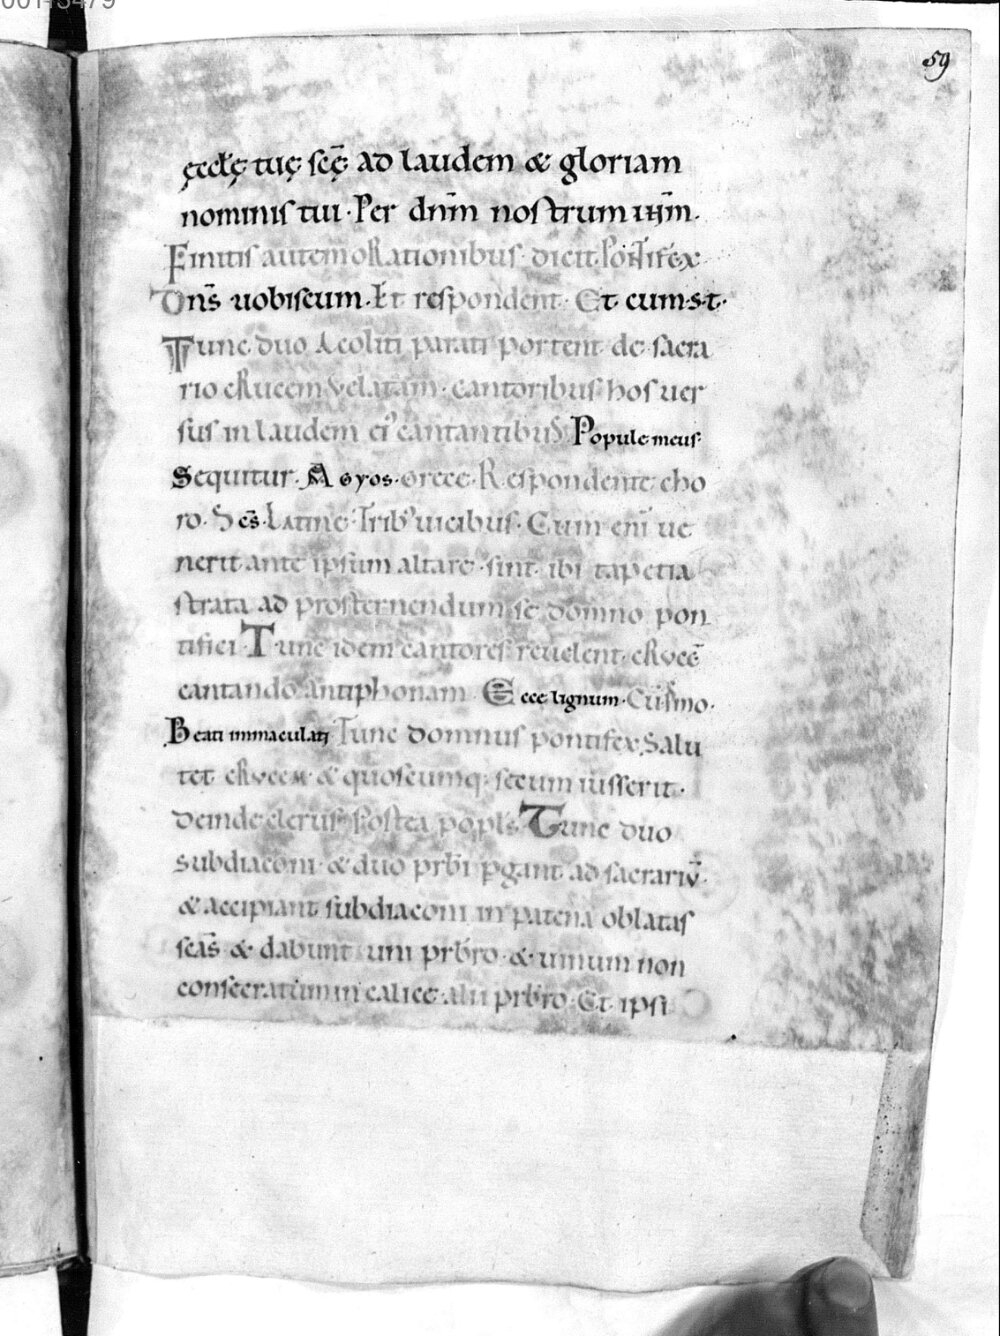 00143479
59
ęcclę tuę scę̄ ad laudem & gloriam
nominis tui · Per dnm̄ nostrum ihm̄.
Finitis autem oRationibus · dicit Pontifex
Dnīs uobiscum. Et respondent · Et cum·s·t·
Tunc duo Acoliti parati portent de sacra
rio cRucem velatam · cantoribus hos uer
sus in laudem ei' cantantibus Popule meus·
Sequitur. Agyos· Grece· Respondente cho
ro. Scs̄· Latine Trib' uicibus. Cum eni ue
nerit ante ipsum altare · sint ibi tapetia
strata ad prosternendum se domno pon
tifici· Tunc idem cantores reuelent cRucē
cantando antiphonam Ecce lignum·
Beati immaculati Tunc domnus pontifex Salu
tet cRucem & quoscumq; secum iusserit.
deinde clerus. Postea popls Tunc duo
subdiaconi & duo prbri pgant ad sacrariū.
& accipiant subdiaconi in patena oblatas
scas̄ & dabunt uni prbro & uinum non
consecratum in calice alii prbro. Et ipsi